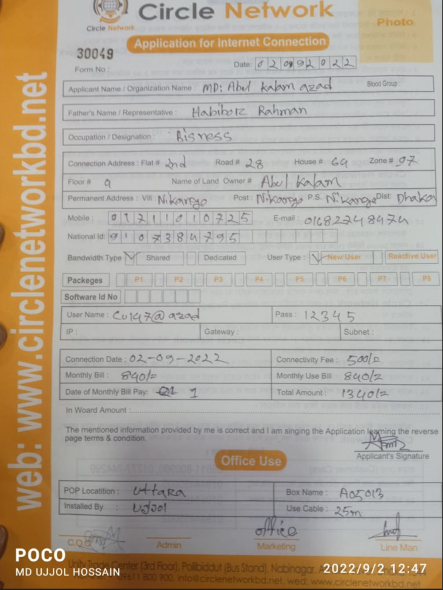 Circle Network
Circle Network
Photo
30049
Application for Internet Connection
Form No :
Date: 02 09 2022
Applicant Name / Organization Name : MD: Abul Kalam azad Blood Group :
Father's Name / Representative : Habibor Rahman
Occupation / Designation : Bisness
Connection Address : Flat # 2nd Road # 28 House # 64 Zone # 97
Floor # 9 Name of Land Owner # Abul Kalam
Permanent Address : Vill Nikungo Post : Nikungo P.S. Nikungo Dist: Dhaka
Mobile : 01711010725 E-mail : 01682748474
National Id: 9107384795
Bandwidth Type Shared Dedicated User Type : New User Reactive User
Packeges P1 P2 P3 P4 P5 P6 P7 P8
Software Id No
User Name : Cu147@azad Pass : 12345
IP : Gateway : Subnet :
Connection Date : 02-09-2022 Connectivity Fee : 500/=
Monthly Bill : 840/= Monthly Use Bill : 840/=
Date of Monthly Bill Pay: 1 Total Amount : 1340/=
In Woard Amount :
The mentioned information provided by me is correct and I am singing the Application learning the reverse
page terms & condition.
Applicant's Signature
Office Use
POP Locatition : Uttara Box Name : A05013
Installed By : Ujjol Use Cable : 25m
office
C.O.O Admin Marketing Line Man
Trade Center (3rd Floor), Polibiddut (Bus Stand), Nabinagar,
info@circlenetworkbd.net, wed: www.circlenetworkbd.net
web: www.circlenetworkbd.net
POCO
MD UJJOL HOSSAIN
2022/9/2 12:47